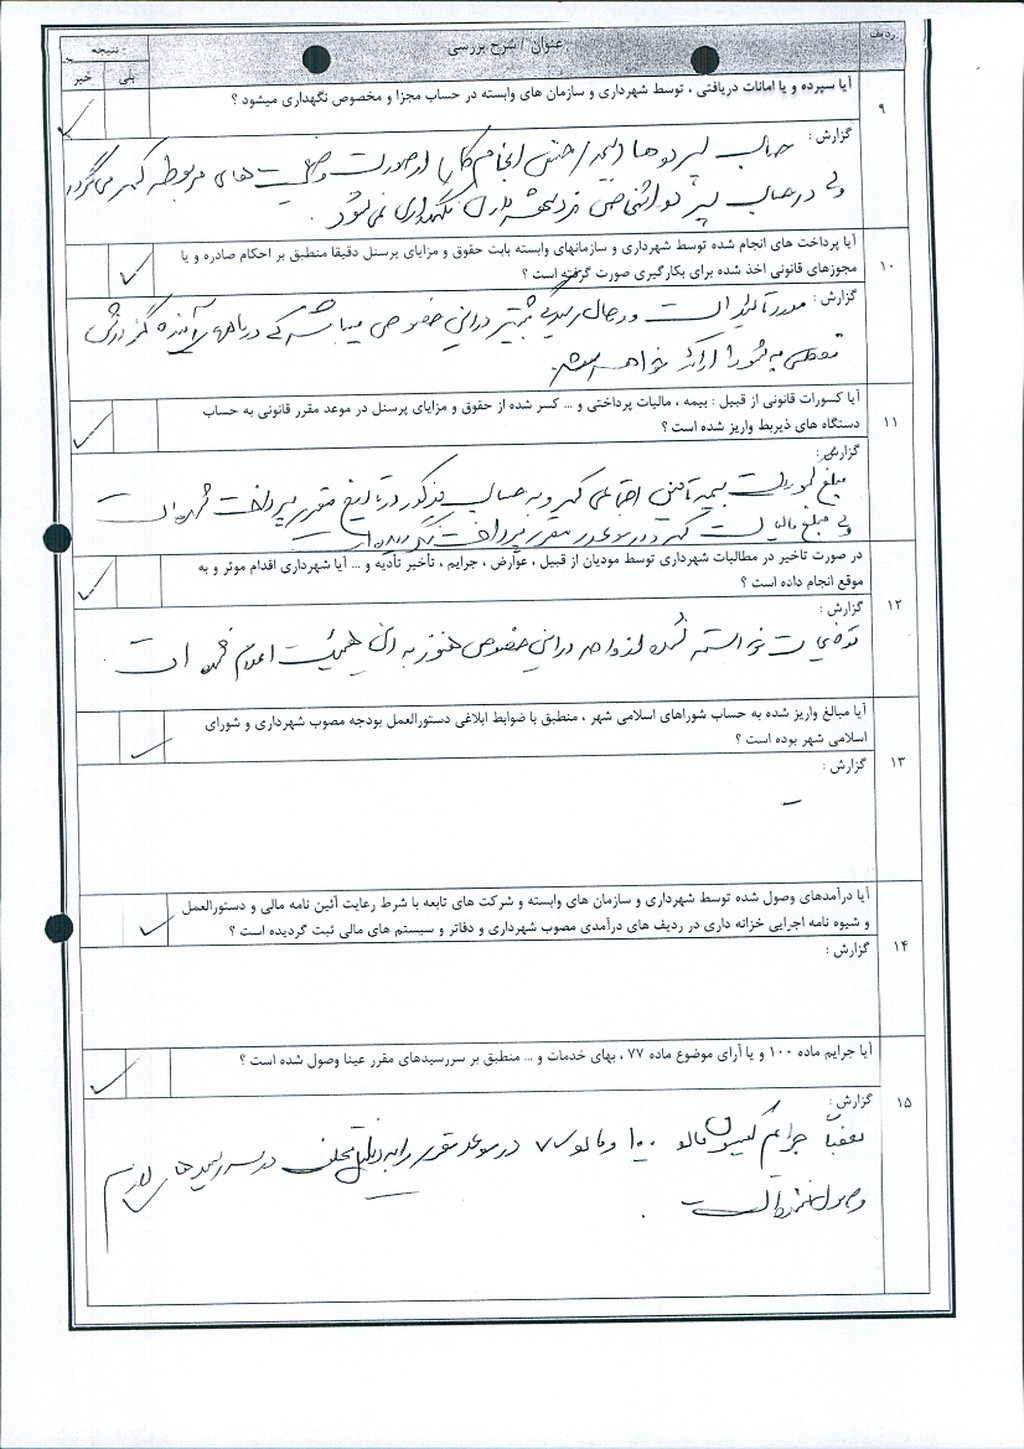 ردیف
عنوان / شرح بررسی
نتیجه
بلی
خیر
۹
آیا سپرده و یا امانات دریافتی ، توسط شهرداری و سازمان های وابسته در حساب مجزا و مخصوص نگهداری میشود ؟
گزارش :
حساب سپرده ها حسن انجام کار از صورت وضعیت های مربوطه کسر می گردد
ولی در حساب سپرده اشخاص نگهداری نمی شود .
۱۰
آیا پرداخت های انجام شده توسط شهرداری و سازمانهای وابسته بابت حقوق و مزایای پرسنل دقیقا منطبق بر احکام صادره و یا
مجوزهای قانونی اخذ شده برای بکارگیری صورت گرفته است ؟
گزارش :
مورد تائید است و در حال رسیدگی بیشتر در این خصوص میباشد که در ماههای آینده گزارش
به شورا ارائه خواهد شد.
۱۱
آیا کسورات قانونی از قبیل : بیمه ، مالیات پرداختی و ... کسر شده از حقوق و مزایای پرسنل در موعد مقرر قانونی به حساب
دستگاه های ذیربط واریز شده است ؟
گزارش :
مبلغ کسورات بیمه تامین اجتماعی کسر و به حساب مذکور در تاریخ مقرر پرداخت شده است
ولی مبلغ مالیات کسر و در موعد مقرر پرداخت نگردیده است
۱۲
در صورت تاخیر در مطالبات شهرداری توسط مودیان از قبیل ، عوارض ، جرایم ، تأخیر تأدیه و ... آیا شهرداری اقدام موثر و به
موقع انجام داده است ؟
گزارش :
توضیحات خواسته شده از واحد در این خصوص هنوز به این هیئت اعلام نشده است
۱۳
آیا مبالغ واریز شده به حساب شوراهای اسلامی شهر ، منطبق با ضوابط ابلاغی دستورالعمل بودجه مصوب شهرداری و شورای
اسلامی شهر بوده است ؟
گزارش :
–
۱۴
آیا درآمدهای وصول شده توسط شهرداری و سازمان های وابسته و شرکت های تابعه با شرط رعایت آئین نامه مالی و دستورالعمل
و شیوه نامه اجرایی خزانه داری در ردیف های درآمدی مصوب شهرداری و دفاتر و سیستم های مالی ثبت گردیده است ؟
گزارش :
۱۵
آیا جرایم ماده ۱۰۰ و یا آرای موضوع ماده ۷۷ ، بهای خدمات و ... منطبق بر سررسیدهای مقرر عینا وصول شده است ؟
گزارش :
بعضاً جرایم کمیسیون ماده ۱۰۰ و ماده ۷۷ در موعد مقرر بدلایل مختلف در سررسیدهای لازم
وصول نشده است .